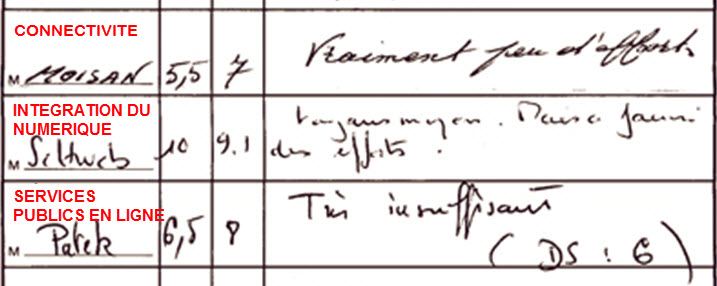 CONNECTIVITE
M MOISAN 5,5 7 Vraiment peu d'efforts
INTEGRATION DU
NUMERIQUE
Toujours moyen. Mais a fourni
M 10 9.1 des efforts.
SERVICES
PUBLICS EN LIGNE
Très insuffisant
M Patek 6,5 8
(DS : 6)